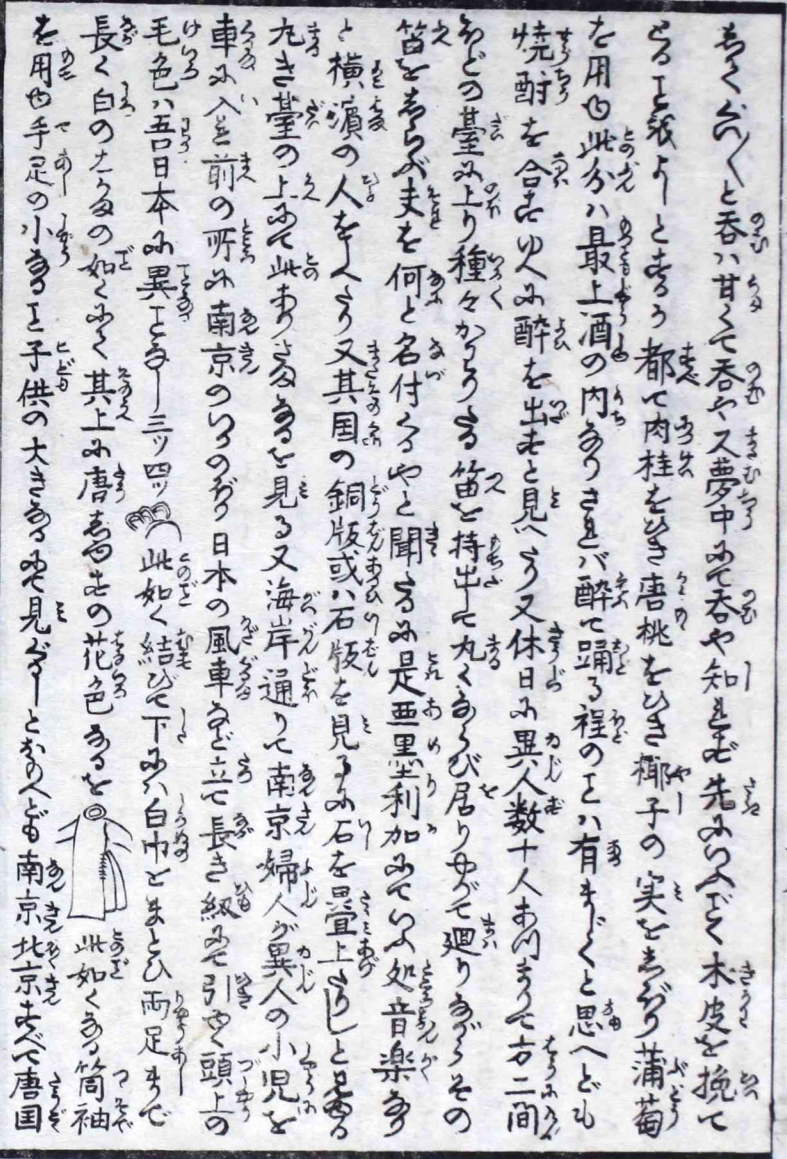 と呑ハ甘くて呑や又夢中にて呑や知れず先にいへどく木皮を挽て
とるを最よしとする都て肉桂をひき唐桃をひき椰子の実をしぼり蒲萄
を用ゆ此分ハ最上酒の内なりされバ酔て踊る程のことハ有まじくと思へども
焼酎を合すゆへに酔を出すと見へたり又休日に異人数十人あつまりて方二間
ほどの臺に上り種々かはりたる笛を持出して丸くならび居りやがて廻りながらその
笛をしらぶ夫を何と名付くるやと聞たるに是亜墨利加にていふ処音楽なり
と横濱の人をしへたり又其国の銅版或ハ石版を見るに石を畳上たりしと見ゆる
丸き臺の上にて此ありさまなるを見る又海岸通りて南京婦人が異人の小児を
車に入を前の所に南京のいろのぼり日本の風車など立て長き紐にて引ゆく頭上の
毛色ハ吾日本に異ことなし三ッ四ッ此如く結びて下にハ白巾をまとひ両足まで
長く白の如くにて其上に唐の花色なるを此如くなる筒袖
を用ゆ手足の小なること子供の大きなるにて見ぐるしとおもへども南京北京すべて唐国